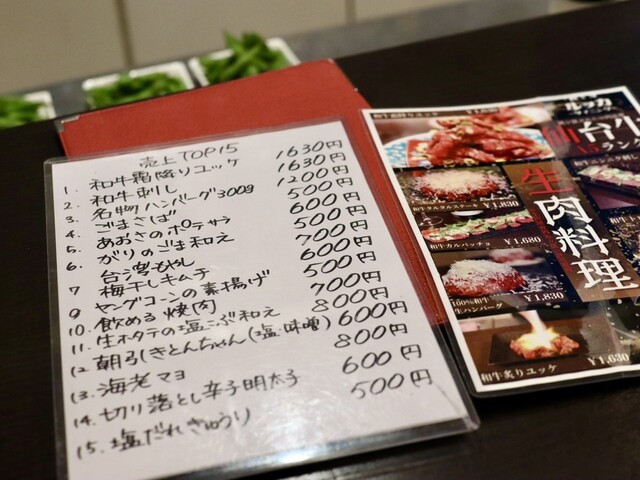 売上TOP15
1. 和牛霜降りユッケ 1630円
2. 和牛刺し 1630円
3. 名物ハンバーグ300g 1200円
4. ごまさば 500円
5. あおさのポテサラ 600円
6. がりのごま和え 500円
7 台湾もやし 700円
梅干しキムチ 600円
9 ヤングコーンの素揚げ 500円
10. 飲める焼肉 700円
11. 生ホタテの塩こぶ和え 800円
12 朝引きとんちゃん(塩・味噌) 600円
13. 海老マヨ 800円
14. 切り落とし辛子明太子 600円
15. 塩だれきゅうり 500円
和牛霜降りユッケ ¥1,630
¥1,830
和牛カルパッチョ
¥1,680
100%和牛
生ハンバーグ
¥1,830
和牛炙りユッケ
¥1,630
生肉料理
台